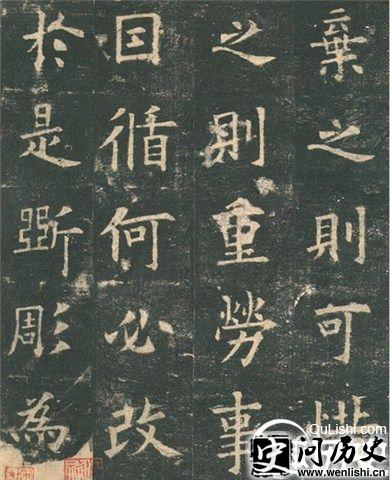 棄之則可惜
之則重勞事
囙循何必改
扵是斲彫為
QuLishi.com
问历史
www.wenlishi.cn